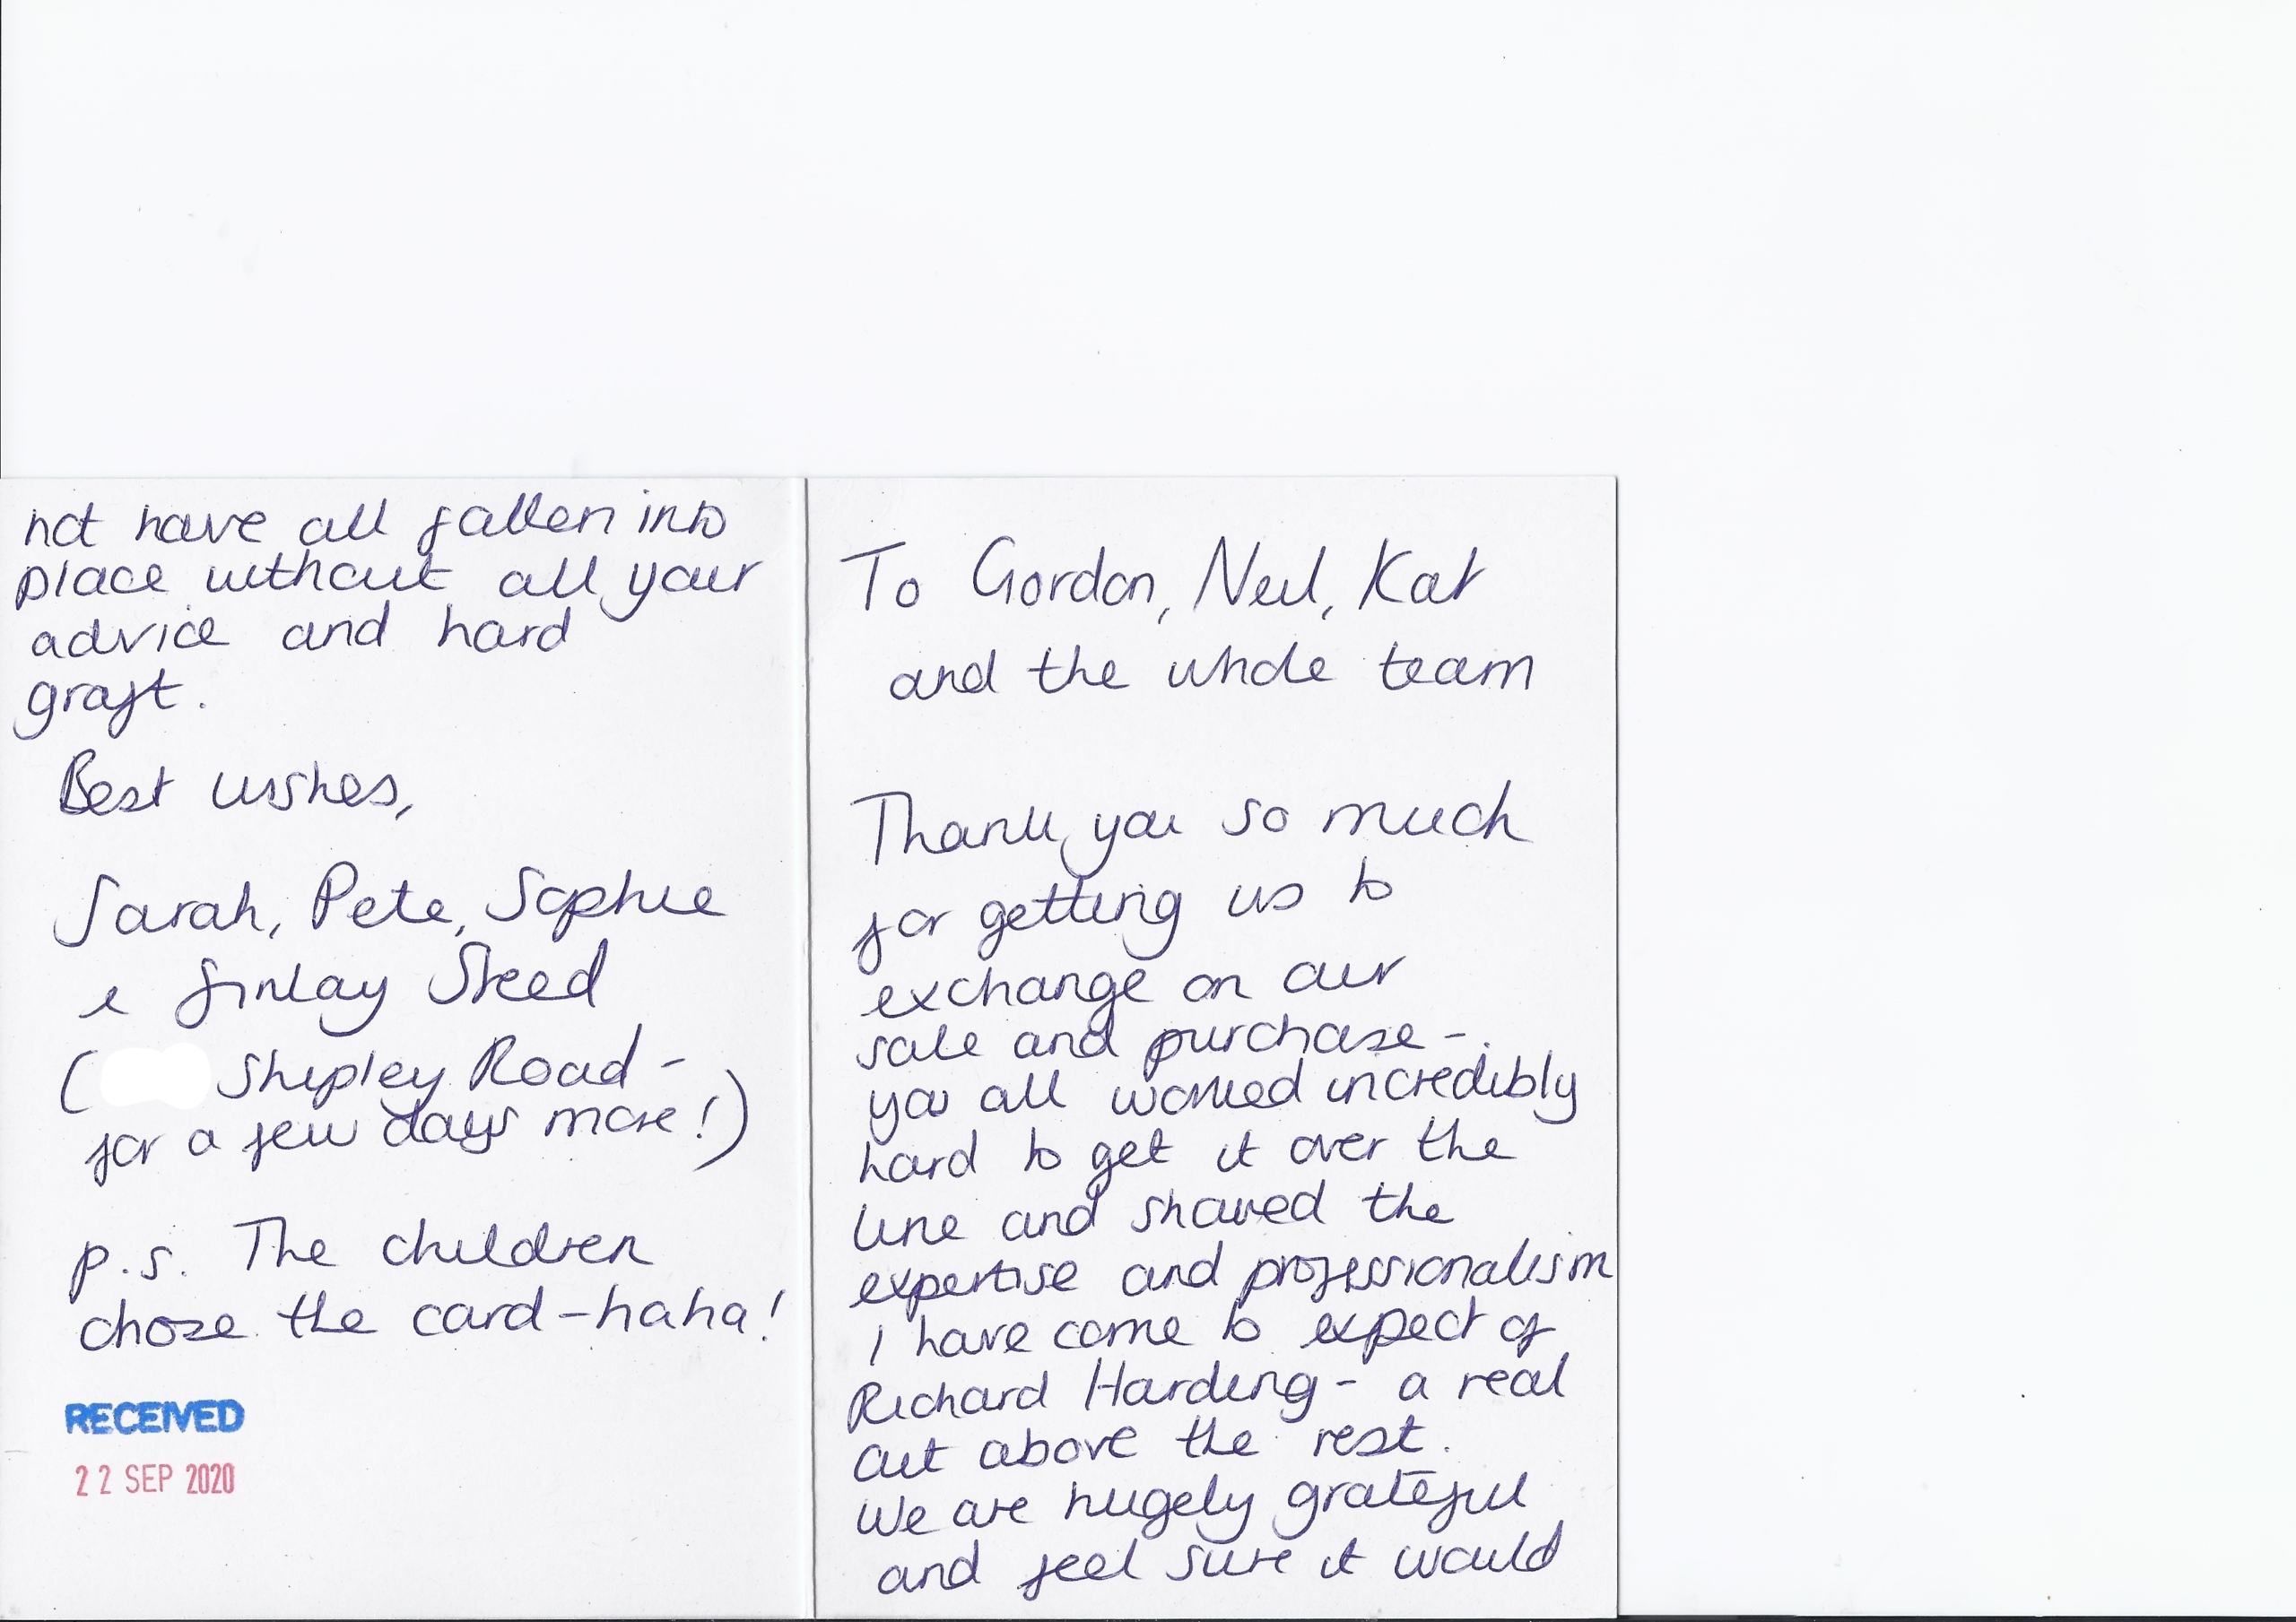 To Gordon, Neil, Kat
and the whole team
Thank you so much
for getting us to
exchange on our
sale and purchase -
you all worked incredibly
hard to get it over the
line and shared the
expertise and professionalism
I have come to expect of
Richard Harding - a real
cut above the rest.
We are hugely grateful
and feel sure it would
not have all fallen into
place without all your
advice and hard
graft.
Best wishes,
Sarah, Pete, Sophie
& Finlay Steed
( Shipley Road -
for a few days more!)
p.s. The children
chose the card - haha!
RECEIVED
22 SEP 2020